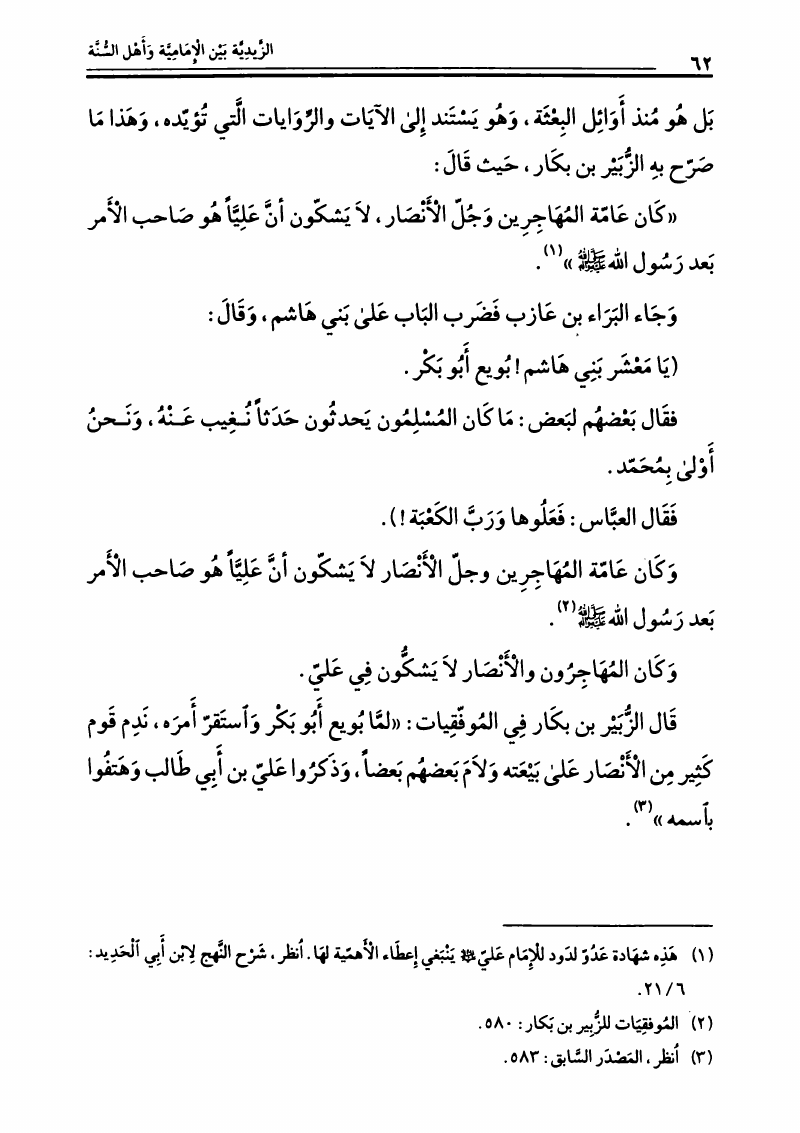 ٦٢
الزَّيدِيَّة بَيْن الْإِمَامِيَّة وَأَهْل السُّنَّة
بَل هُو مُنذ أَوَائِل البِعْثَة ، وَهُو يَسْتَند إِلىٰ الآيَات والرِّوَايات الَّتي تُؤيّده ، وَهَذا مَا
صَرّح بهِ الزُّبَيْر بن بكَار ، حَيث قَالَ :
«كَان عَامّة المُهَاجِرِين وَجُلّ الْأَنْصَار ، لاَ يَشكّون أنَّ عَلِيَّاً هُو صَاحب الْأَمر
بَعد رَسُول الله ﷺ »(١) .
وَجَاء البَرَاء بن عَازب فَضَرب البَاب عَلىٰ بَني هَاشم ، وَقَالَ :
(يَا مَعْشَر بَنِي هَاشم ! بُويع أَبُو بَكْر .
فقَال بَعْضهُم لبَعض : مَا كَان المُسْلِمُون يَحدثُون حَدَثاً نُـغِيب عَـنْهُ ، وَنَـحنُ
أَوْلىٰ بِمُحَمّد .
فَقَال العبَّاس : فَعَلُوها وَرَبَّ الكَعْبَة !) .
وَكَان عَامّة المُهَاجِرِين وجلّ الْأَنْصَار لاَ يَشكّون أنَّ عَلِيَّاً هُو صَاحب الْأَمر
بَعد رَسُول الله ﷺ(٢) .
وَكَان المُهَاجِرُون والْأَنْصَار لاَ يَشكُّون فِي عَليّ .
قَال الزُّبَيْر بن بكَار فِي المُوفّقِيات : «لمَّا بُويع أَبُو بَكْر وَٱستَقرّ أَمرَه ، نَدِم قَوم
كَثِير مِن الْأَنْصَار عَلىٰ بَيْعَته وَلاَمَ بَعضهُم بَعضاً ، وَذَكرُوا عَليّ بن أَبِي طَالب وَهَتفُوا
بٱسمه »(٣) .
(١) هَذِه شهَادة عَدُوّ لدُود للْإمَام عَليّ يَنْبَغي إِعطَاء الْأَهمّية لهَا . ٱنظر ، شَرْح النَّهج لِابْن أَبي ٱلْحَدِيد :
٦ / ٢١ .
(٢) المُوفقِيَات للزُّبِير بن بَكار : ٥٨٠ .
(٣) ٱنظر ، المَصْدَر السَّابق : ٥٨٣ .